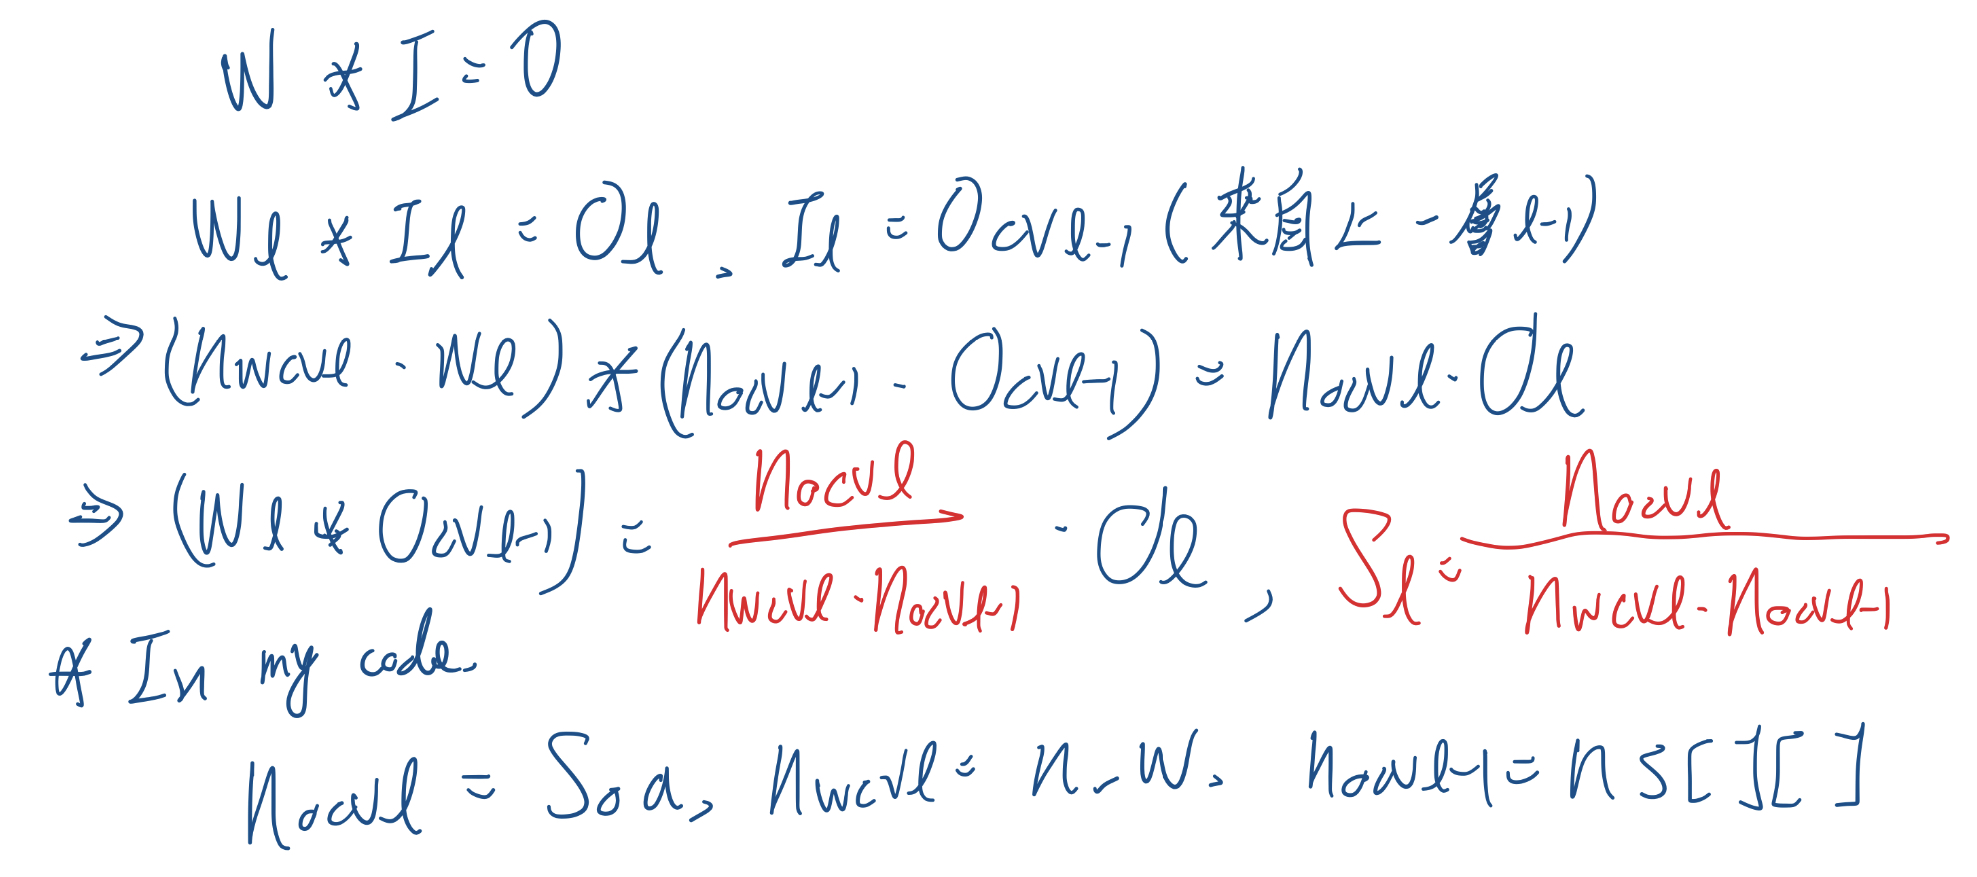 W * I = O
Wl * Il = Ol , Il = Ocvl-1 (來自上一層l-1)
⇒ (nwcvl · Wl) * (nocvl-1 · Ocvl-1) = nocvl · Ol
⇒ (Wl * Ocvl-1) = nocvl / nwcvl · nocvl-1 · Ol , Sl = nocvl / nwcvl · nocvl-1
* In my code.
nocvl = Soa, nwcvl = n_w, nocvl-1 = ns[][]